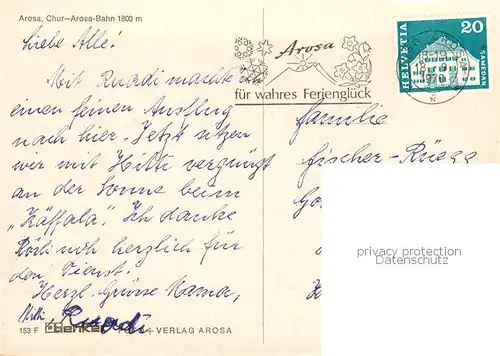 Arosa, Chur-Arosa-Bahn 1800 m
Liebe Alle!
Mit Ruedi machte
einen feinen Ausflug
nach hier. Jetzt sitzen
wir mit Hitti vergnügt
an der Sonne beim
"Käffala". Ich danke
Rösli noch herzlich für
den Dienst.
Herzl. Grüsse Mama,
Hitti Ruedi
153 F VERLAG AROSA
Arosa
für wahres Ferienglück
HELVETIA 20 SAMEDAN
1970
Familie
Fischer-Rüegg
privacy protection
Datenschutz